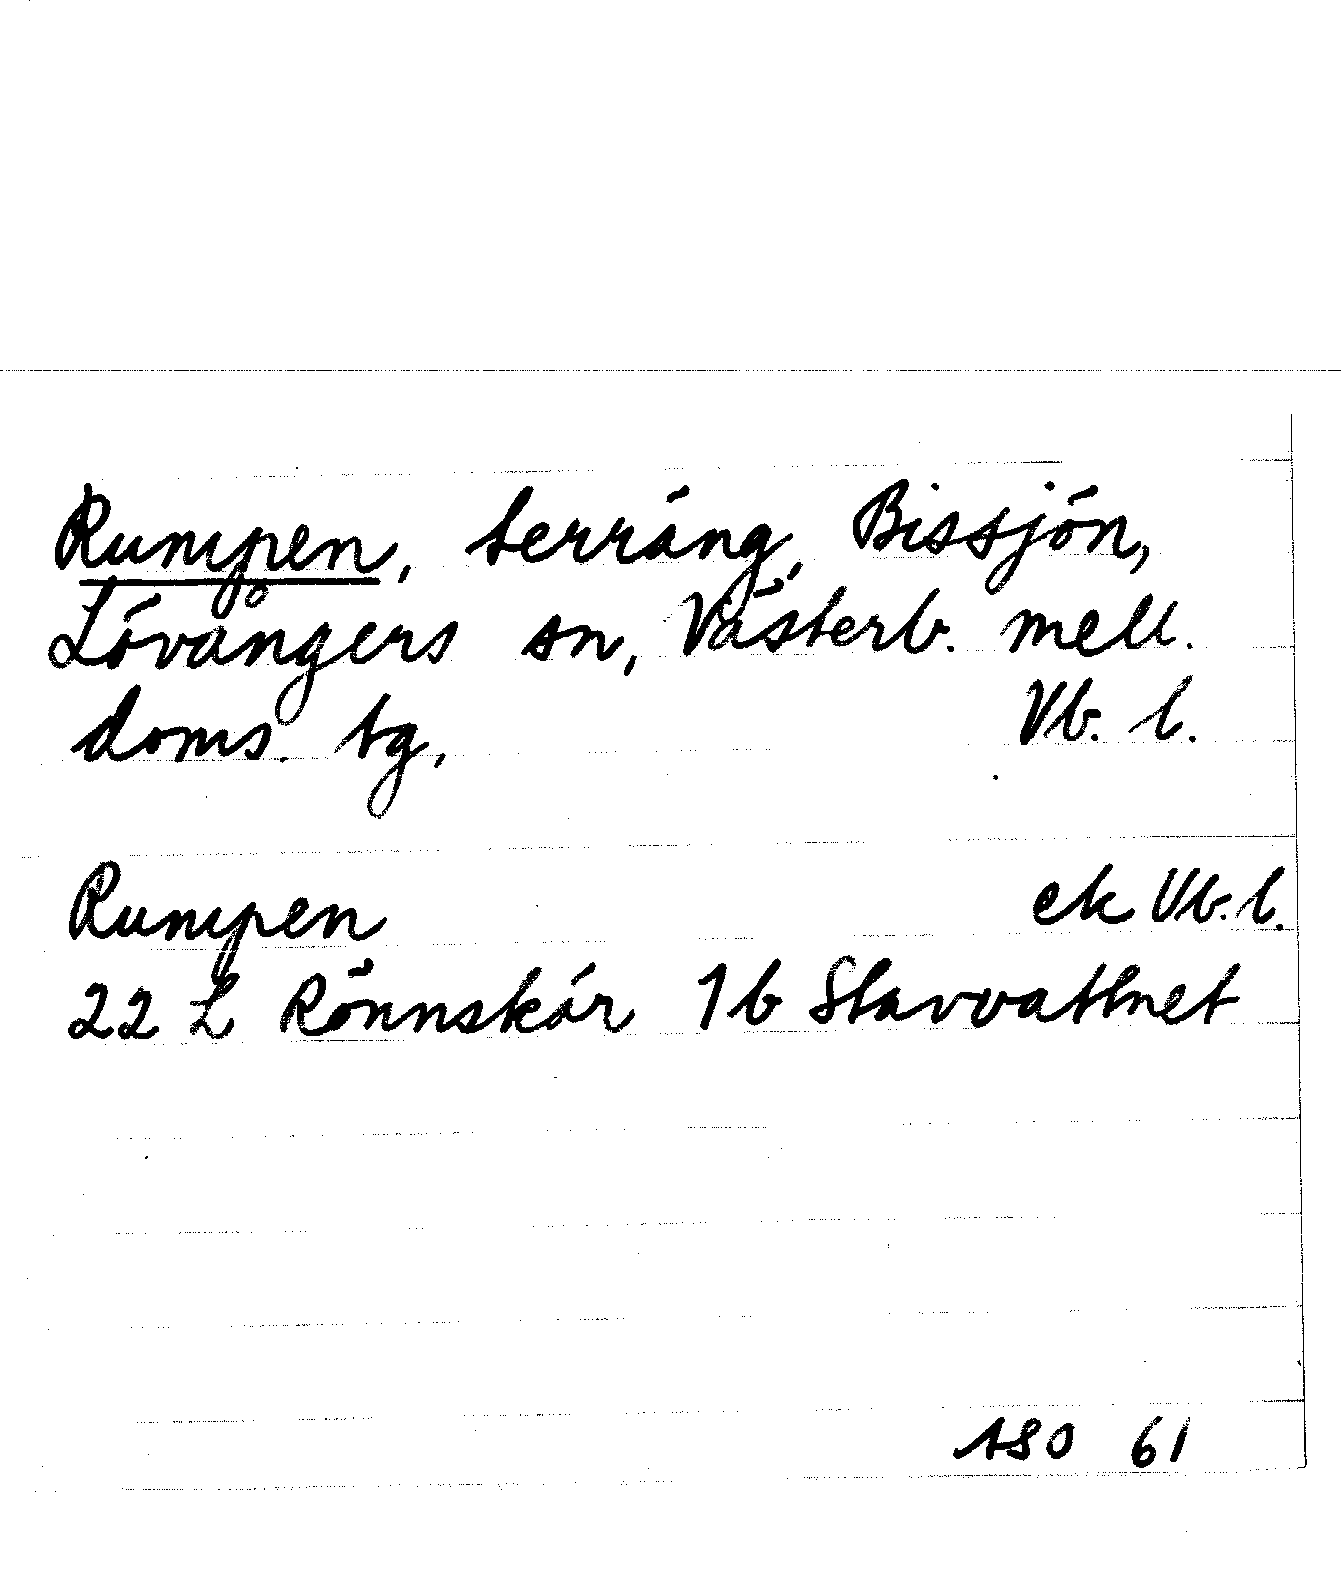 Rumpen, terräng, Bissjön,
Lövångers sn, Västerb. mell.
doms. tg, Vb. l.
Rumpen ek Vb. l.
22 L Rönnskär 1b Stavvattnet
ASO 61